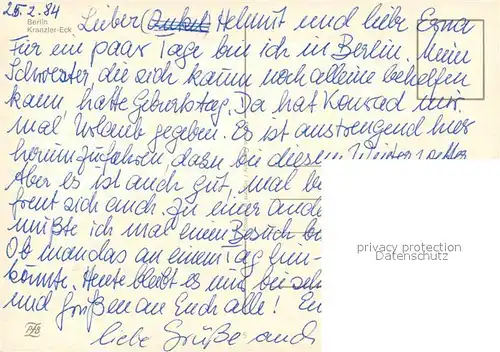 25.2.84
Berlin
Kranzler-Eck
Lieber (Onkel) Helmut und liebe Erna
Für ein paar Tage bin ich in Berlin. Mein
Schwester die sich kaum noch alleine behelfen
kann hatte Geburtstag. Da hat Konrad mir
mal Urlaub gegeben. Es ist anstrengend hier
herumzufahren, dazu bei diesem Winterwetter
Aber es ist auch gut, mal be
freut sich auch. Zu einer ande
müßte ich mal einen Besuch be
Ob man das an einem Tag hin-
könnte. Heute bleibt es nur bei
und Grüßen an Euch alle!
liebe Grüße auch
privacy protection
Datenschutz